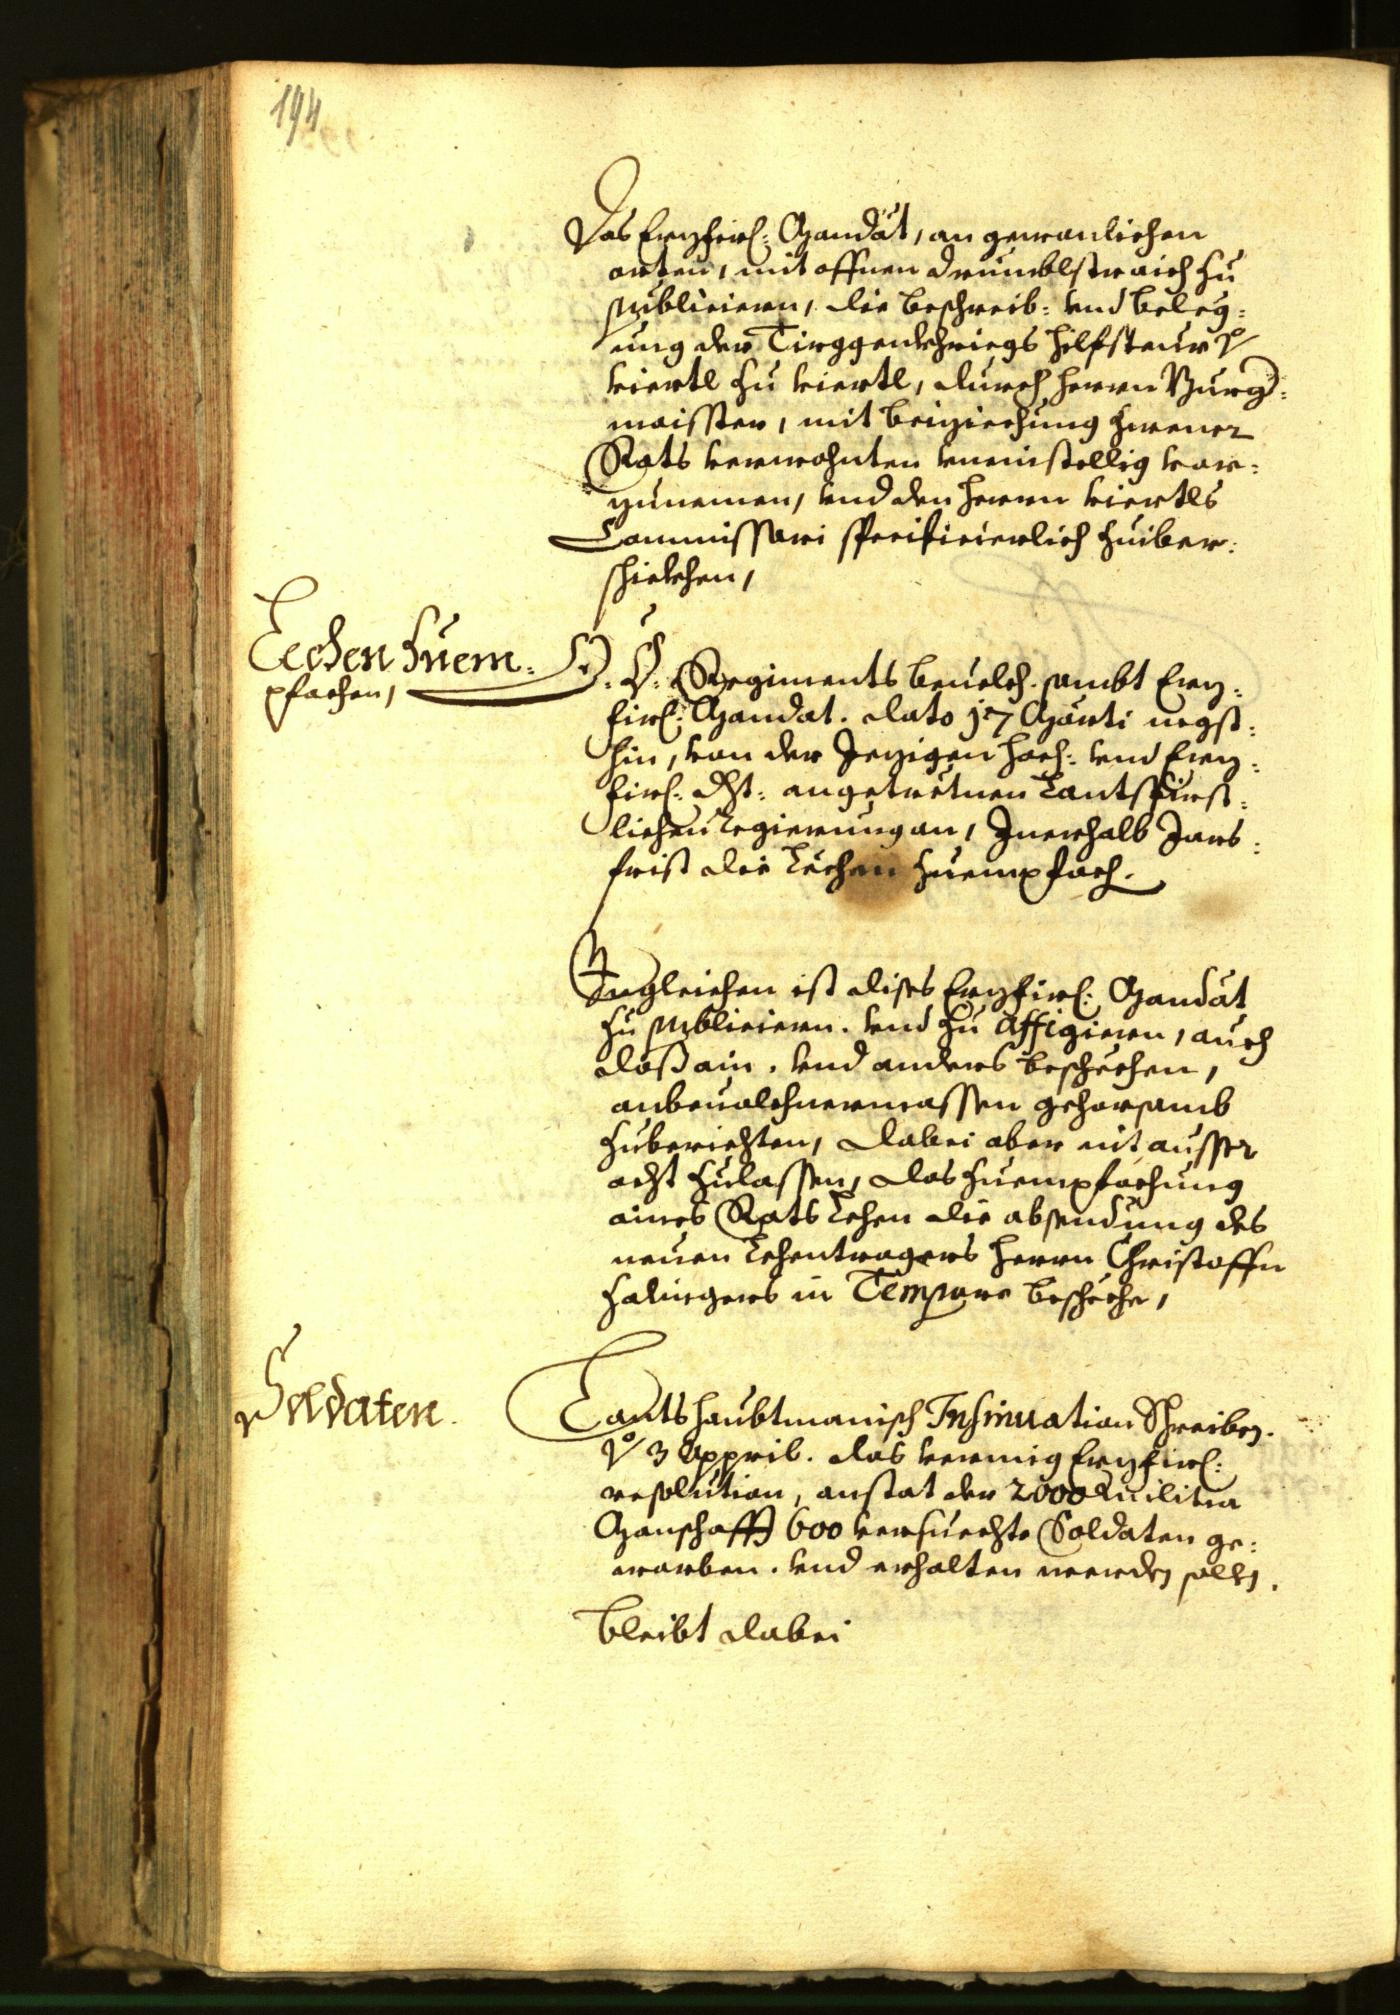 194
Das Erzfirl: Mandat, an gewonlichen
orten, mit offnen drumblstraich zu
publicieren, die beschreib: vnd beleg:
ung der Tirggenkhriegs hilfsteur
viertl zu viertl, durch herrn Burg:
maisster, mit beiziechung zwener
Rats verwohnten vneinstellig vor:
zunemen, vnd den herrn viertls
Commissari specificierlich zuiber:
schickhen,
Lechen zuem:
pfachen,
O: Ö: Regiments beuelch sambt Erz:
firl: Mandat. dato 17 Marti negst:
hin, von der Jezigen hoch: vnd Erz:
firl: dht: angetretnen Lantsfirst:
lichen regierung an, Jnerhalb Jars:
frist die Lechen zuempfach.
Jngleichen ist dises Erzfirl: Mandat
zu publicieren. vnd zu affigieren, auch
dass ain. vnd anders beschechen,
anbeuolchnermassen gehorsamb
zuberichten, dabei aber nit ausser
acht zulassen, das zuempfachung
aines Rats Lehen die absendung des
neuen Lehentragers herrn Christoffn
in Tempore bescheche,
Soldaten.
Lantshaubtmanisch Insinuation Schreiben.
3 Appril. das vermig Erzfirl:
resolution, anstat der 2000 Militia
Manschafft 600 versuechte Soldaten ge:
worben. vnd erhalten werden sollen.
bleibt dabei